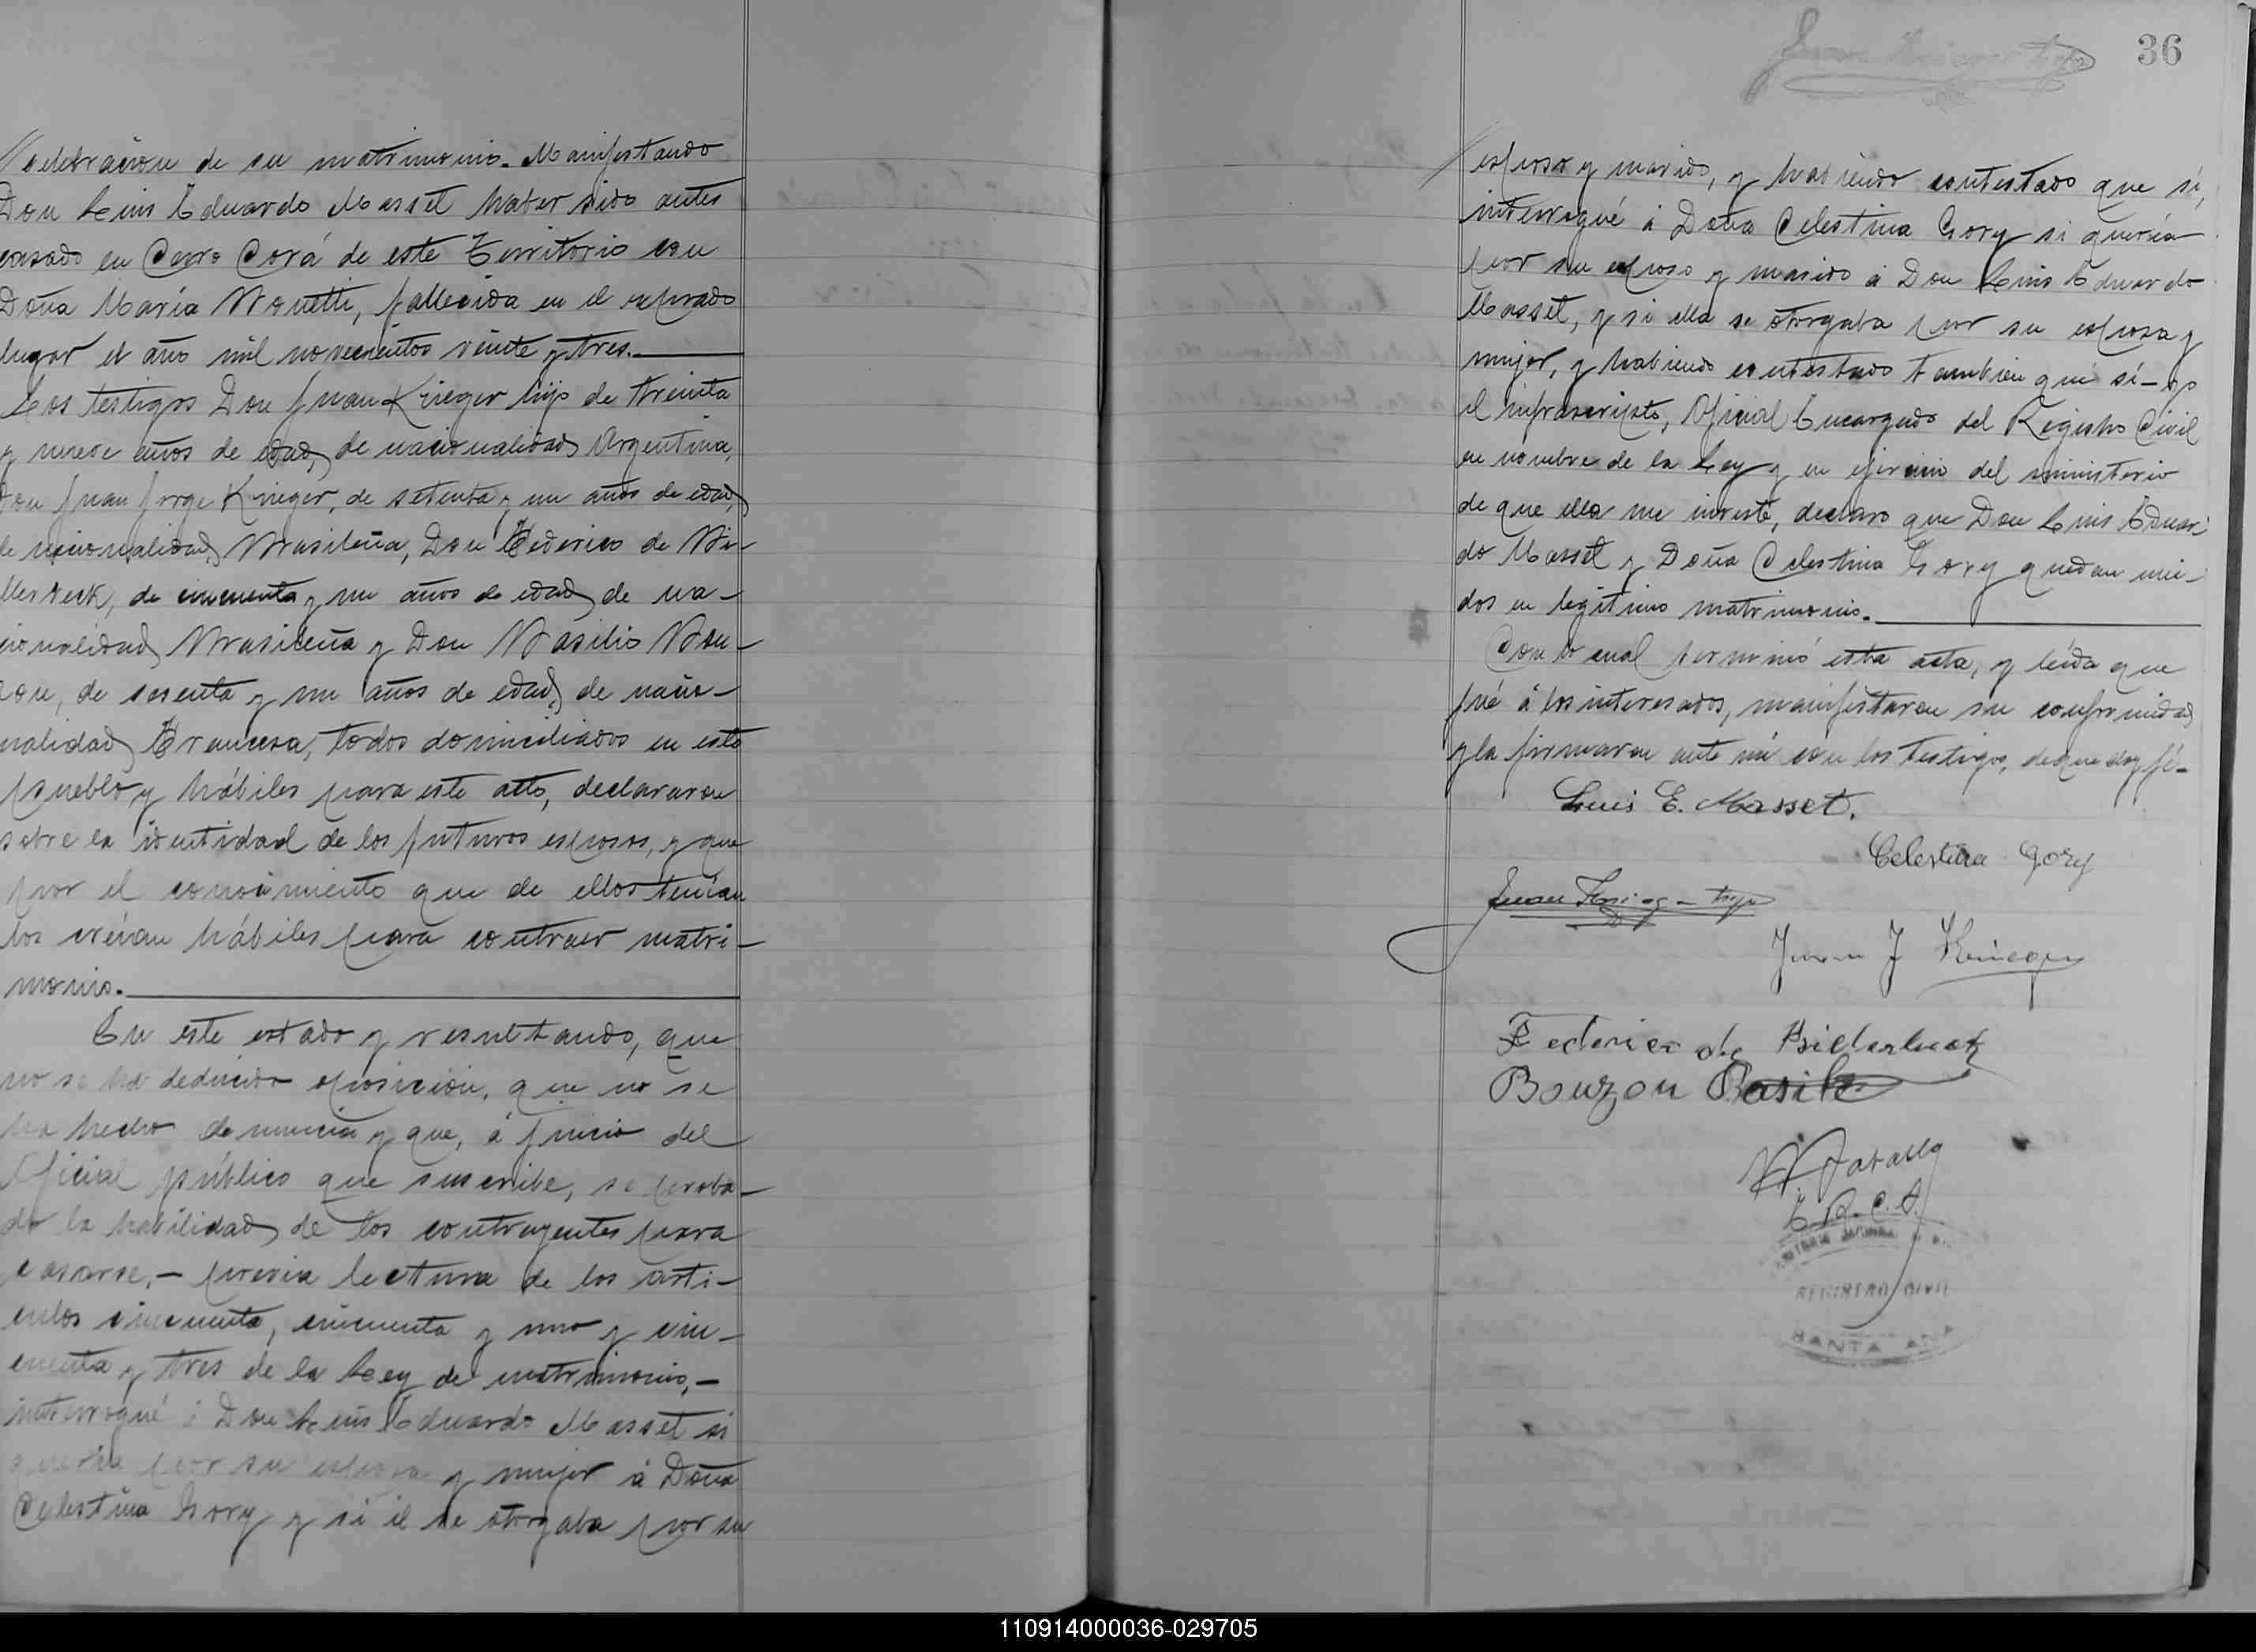 //celebración de su matrimonio. Manifestando
Don Luis Eduardo Masset haber sido antes
casado en Cerro Corá de este Territorio con
Doña María Monetti, fallecida en el expresado
lugar el año mil novecientos veinte y tres.
Los testigos Don Juan Krieger hijo de treinta
y nueve años de edad, de nacionalidad Argentina,
Don Juan Jorge Krieger, de setenta y un años de edad,
de nacionalidad Brasileña, Don Federico de Bi-
llerbeck, de cincuenta y un años de edad, de na-
cionalidad Brasileña y Don Basilio Bou-
zon, de sesenta y un años de edad, de nacio-
nalidad Francesa, todos domiciliados en este
pueblo y hábiles para este acto, declararon
sobre la identidad de los futuros esposos, y que
por el conocimiento que de ellos tenían
los creían hábiles para contraer matri-
monio.
En este estado y resultando, que
no se ha deducido oposición, que no se
ha hecho denuncia y que, á juicio del
Oficial público que suscribe, se proba-
do la habilidad de los contrayentes para
casarse,- previa lectura de los artí-
culos cincuenta, cincuenta y uno y cin-
cuenta y tres de la Ley de matrimonio,-
interrogué á Don Luis Eduardo Masset si
quería por su esposa y mujer á Doña
Celestina Gory y si él se otorgaba por su
Juan Krieger hijo
36
/esposo y marido, y habiendo contestado que sí,
interrogué á Doña Celestina Gory si quería
por su esposo y marido á Don Luis Eduardo
Masset, y si ella se otorgaba por su esposa y
mujer, y habiendo contestado tambien que sí- yo
el infrascripto, Oficial Encargado del Registro Civil
en nombre de la Ley y en ejercicio del ministerio
de que ella me inviste, declaro que Don Luis Eduar-
do Masset y Doña Celestina Gory quedan uni-
dos en legítimo matrimonio.
Con lo cual terminó esta acta, y leída que
fué á los interesados, manifestaron su conformidad
y la firmaron ante mí con los testigos, de que doy fé-
Luis E. Masset.
Celestina Gory
Juan Krieger hijo
Juan J Krieger
Federico de Billerbeck
Bouzon Basile
E. R. C. A.
REGISTRO CIVIL
SANTA ANA
110914000036-029705